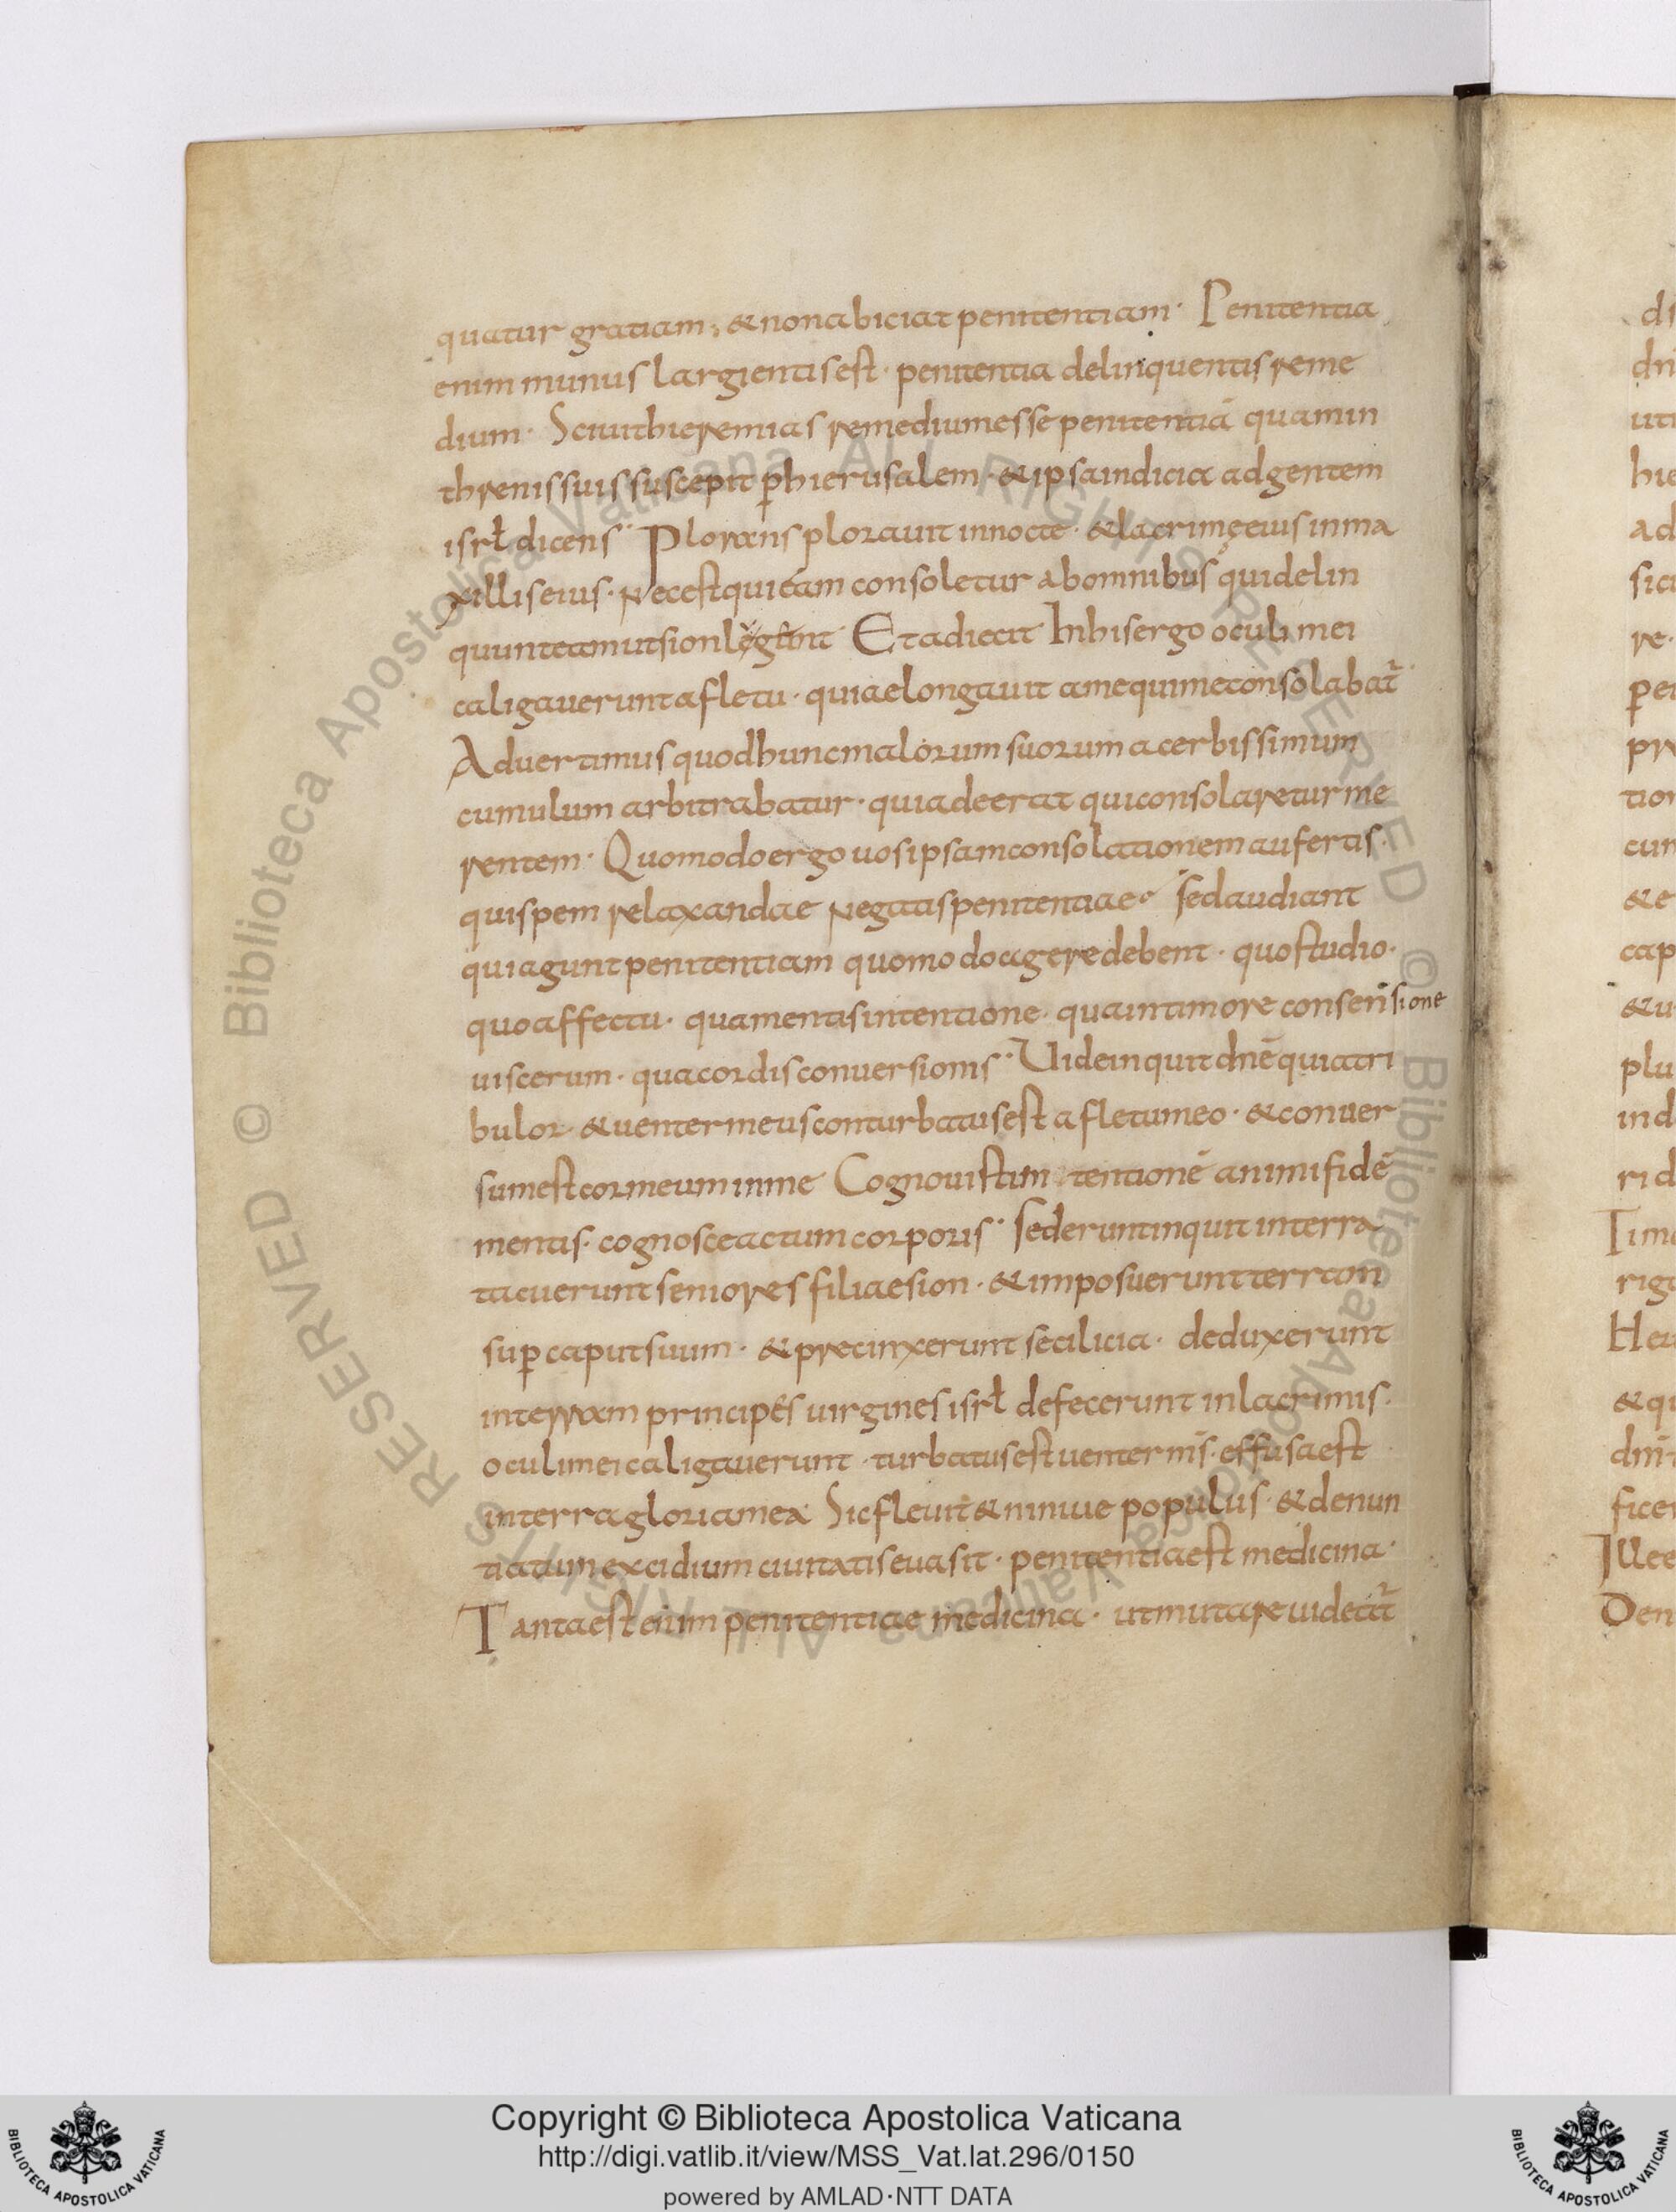 quatur gratiam; & non abiciat penitentiam· Penitentia
enim munus largientis est· penitentia delinquentis reme
dium· Sciuit hieremias remedium esse penitentiā quam in
threnis suis suscepit ꝑ hierusalem· & ipsa indicia ad gentem
isrł dicens· Plorans plorauit in nocte· & lacrimę eius in ma
xillis eius· Nec est qui eam consoletur ab omnibus qui delin
quunt Et adiecit In his ergo oculi mei
caligauerunt a fletu· quia elongauit a me qui me consolabat̃
Aduertimus quod hunc malorum suorum acerbissimum
cumulum arbitrabatur· quia deerat qui consolaretur me
rentem· Quomodo ergo uos ipsam consolationem aufertis·
qui spem relaxandae negatis penitentiae· sed audiant
qui agunt penitentiam quomodo agere debent· quo studio·
quo affectu· qua mentis intentione· qua intimore consensione
uiscerum· qua cordis conuersionis· Uide inquit dnē quia tri
bulor· & uenter meus conturbatus est a fletu meo· & conuer
sum est cor meum in me Cognouist intentionē animi fidē
mentis· cognosce actum corporis· sederunt inquit in terra
tacuerunt seniores filiae sion· & imposuerunt terram
suꝑ caput suum· & precinxerunt se cilicia· deduxerunt
in terram principes uirgines isrł defecerunt in lacrimis·
oculi mei caligauerunt· turbatus est uenter m̄s· effusa est
in terra gloria mea Sic fleuit & niniue populus· & denun
tiatum excidium ciuitatis euasit· penitentia est medicina·
Tanta est enim penitentiae medicina· ut mutare uidetur̃
di
dn
uti
hie
ad
sic
re·
ꝑ
pr
tion
cum
& e
cap
& u
plu
ind
ri d
Tim
rig
Heu
& qu
dni
fice
Ille
Den
© Biblioteca Apostolica Vaticana ALL RIGHTS RESERVED © Biblioteca Apostolica Vaticana ALL RIGHTS RESERVED
Copyright © Biblioteca Apostolica Vaticana
http://digi.vatlib.it/view/MSS_Vat.lat.296/0150
powered by AMLAD·NTT DATA
BIBLIOTECA APOSTOLICA VATICANA
BIBLIOTECA APOSTOLICA VATICANA